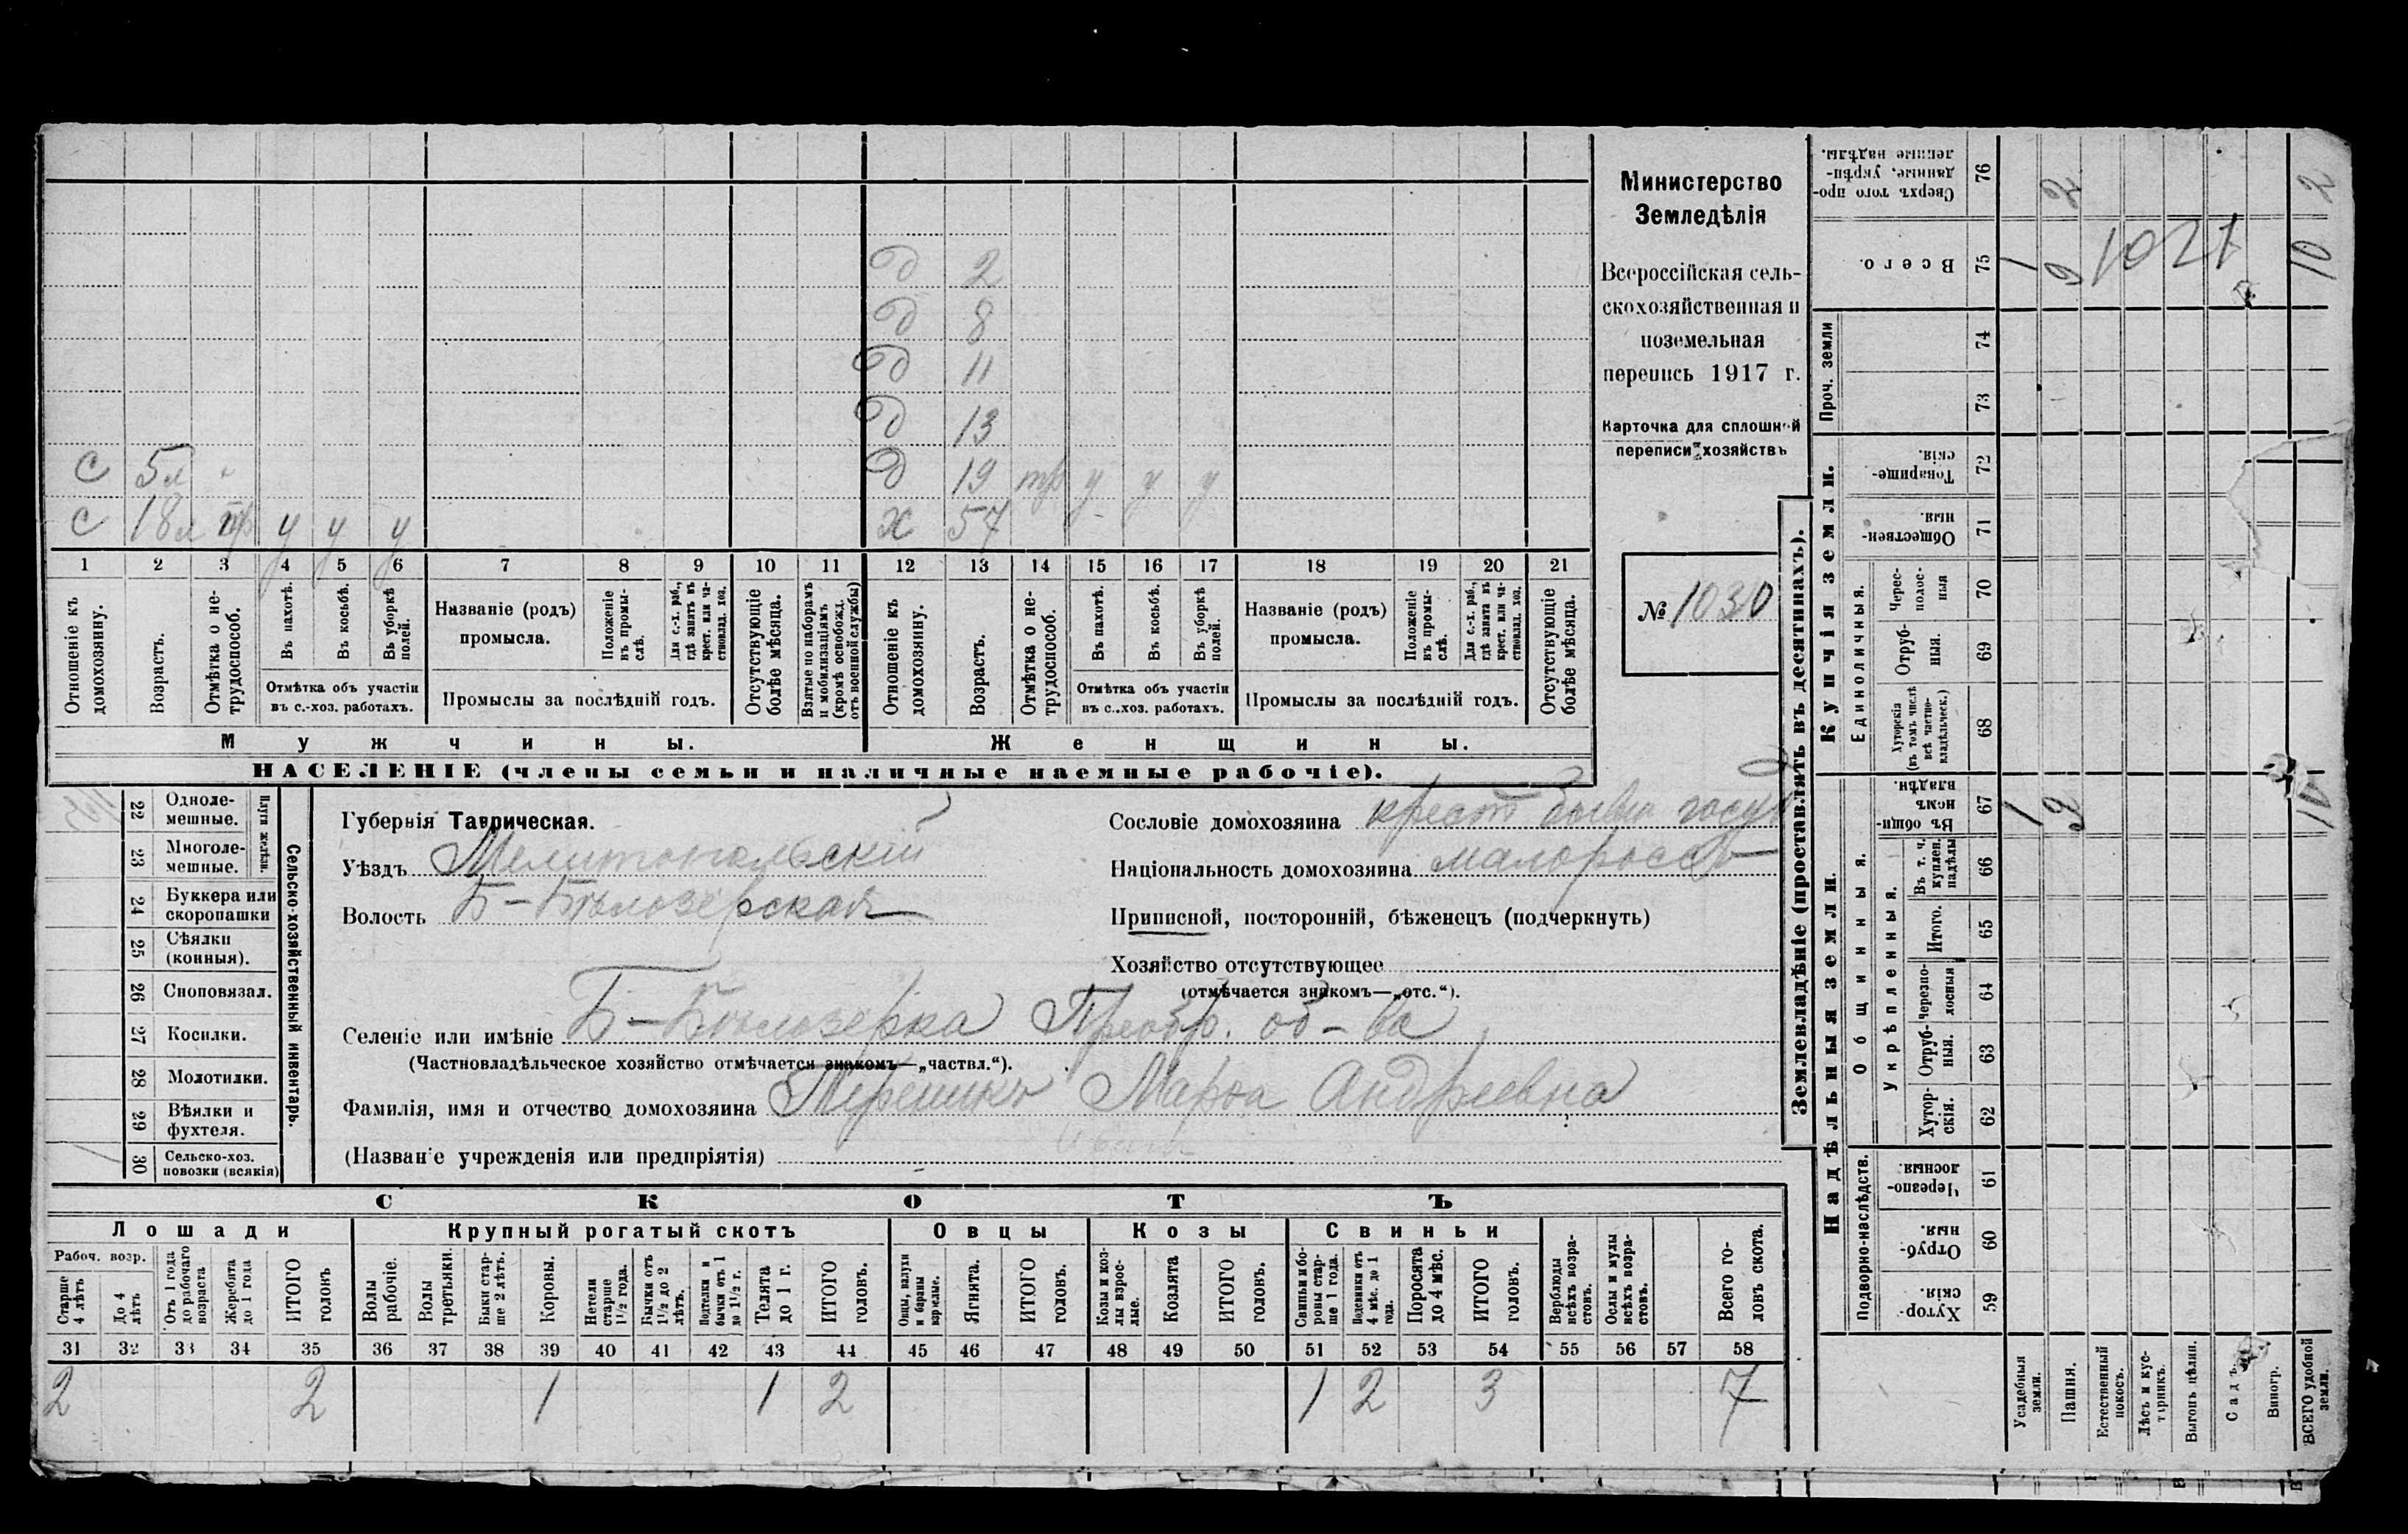 д 2
д 8
д 11
д 13
с 5л д 19 тр у у у
с 18л тр у у у х 57
1 2 3 4 5 6 7 8 9 10 11 12 13 14 15 16 17 18 19 20 21
Отношеніе къ домохозяину.
Возрастъ.
Отмѣтка о не-трудоспособ.
Въ пахотѣ.
Въ косьбѣ.
Въ уборкѣ полей.
Отмѣтка объ участіи
въ с.-хоз. работахъ.
Названіе (родъ)
промысла.
Положеніе въ промы-слѣ.
Для с.-х. раб., гдѣ занятъ въ крест. или ча-стновлад. хоз.
Промыслы за послѣдній годъ.
Отсутствующіе болѣе мѣсяца.
Взятые по наборамъ и мобилизаціямъ (кромѣ освобожд. отъ военной службы)
Отношеніе къ домохозяину.
Возрастъ.
Отмѣтка о не-трудоспособ.
Въ пахотѣ.
Въ косьбѣ.
Въ уборкѣ полей.
Отмѣтка объ участіи
въ с.-хоз. работахъ.
Названіе (родъ)
промысла.
Положеніе въ промы-слѣ.
Для с.-х. раб., гдѣ занята въ крест. или ча-стновлад. хоз.
Промыслы за послѣдній годъ.
Отсутствующіе болѣе мѣсяца.
Мужчины.
Женщины.
НАСЕЛЕНІЕ (члены семьи и наличные наемные рабочіе).
Министерство
Земледѣлія
Всероссійская сель-
скохозяйственная и
поземельная
перепись 1917 г.
Карточка для сплошной
переписи хозяйствъ
№ 1030
22 Одноле-
мешные.
23 Многоле-
мешные.
Плуги желѣзн.
24 Буккера или
скоропашки
25 Сѣялки
(конныя).
26 Сноповязал.
27 Косилки.
28 Молотилки.
29 Вѣялки и
фухтеля.
30 Сельско-хоз.
повозки (всякія)
Сельско-хозяйственный инвентарь.
Губернія Таврическая.
Уѣздъ Мелитопольскій
Волость Б-Бѣлозерская
Сословіе домохозяина крест бывш госуд
Національность домохозяина малороссъ
Приписной, посторонній, бѣженецъ (подчеркнуть)
Хозяйство отсутствующее
(отмѣчается знакомъ—„отс.“).
Селеніе или имѣніе Б-Бѣлозерка Преобр. об-ва
(Частновладѣльческое хозяйство отмѣчается знакомъ—„частвл.“).
Фамилія, имя и отчество домохозяина Марѳа Андреевна
(Названіе учрежденія или предпріятія)
СКОТЪ
Лошади
Крупный рогатый скотъ
Овцы
Козы
Свиньи
Рабоч. возр.
Старше 4 лѣтъ
До 4 лѣтъ
Отъ 1 года до рабочаго возраста
Жеребята до 1 года
ИТОГО головъ
Волы рабочіе.
Волы третьяки.
Быки стар-ше 2 лѣтъ.
Коровы.
Нетели старше 1½ года.
Бычки отъ 1½ до 2 лѣтъ.
Подтелки и бычки отъ 1 до 1½ г.
Телята до 1 г.
ИТОГО головъ.
Овцы, валухи и бараны взрослые.
Ягнята.
ИТОГО головъ.
Козы и коз-лы взрос-лые.
Козлята
ИТОГО головъ.
Свиньи и бо-ровы стар-ше 1 года.
Подсвинки отъ 4 мѣс. до 1 года.
Поросята до 4 мѣс.
ИТОГО головъ.
Верблюды всѣхъ возра-стовъ.
Ослы и мулы всѣхъ возра-стовъ.
Всего го-ловъ скота.
31 32 33 34 35 36 37 38 39 40 41 42 43 44 45 46 47 48 49 50 51 52 53 54 55 56 57 58
2 2 1 1 2 1 2 3 7
Землевладѣніе (проставлять въ десятинахъ).
Надѣльныя земли.
Купчія земли.
Проч. земли
Подворно-наслѣдств.
Общинныя.
Укрѣпленныя.
Единоличныя.
Сверхъ того про-данные, укрѣп-ленные надѣлы. 76 2 2
Всего. 75 1 9 10 1021
74
73
Товарище-скія. 72
Обществен-ныя. 71
Черес-полос-ныя 70
Отруб-ныя. 69
Хуторскія (въ томъ числѣ всѣ частно-владѣльческ.) 68
Въ общи-номъ владѣн. 67 1 9 10
Въ т. ч. куплен. надѣлы 66
Итого. 65
Черезпо-лосныя 64
Отруб-ныя. 63
Хутор-скія. 62
Черезпо-лосныя. 61
Отруб-ныя. 60
Хутор-скія. 59
Усадебныя земли.
Пашня.
Естественный покосъ.
Лѣсъ и кус-тарникъ.
Выгонъ цѣлин.
Садъ.
Виногр.
ВСЕГО удобной земли.